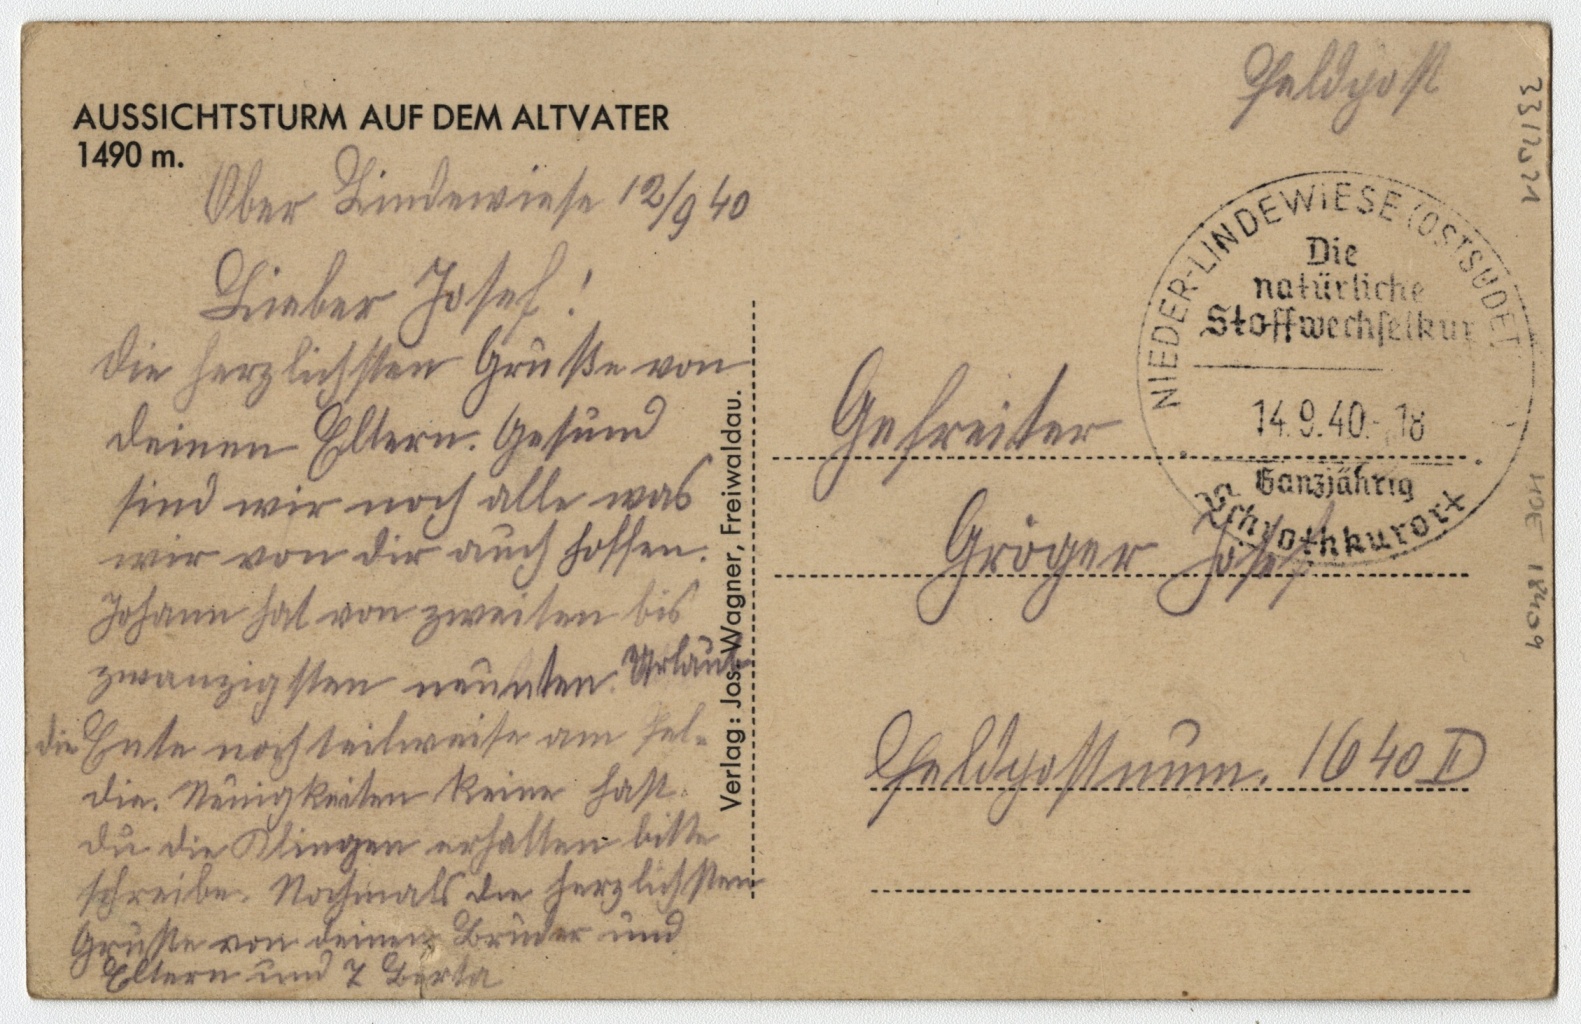 AUSSICHTSTURM AUF DEM ALTVATER
1490 m.
Ober Lindewiese 12/9 40
Lieber Josef!
die herzlichsten Grüße von
deinen Eltern. Gesund
sind wir noch alle was
wir von dir auch hoffen.
Johann hat von zweiten bis
zwanzigsten neunten Urlaub
die Ente noch teilweise am Fel-
die. Neuigkeiten keine hast
du die Klingen erhalten bitte
schreibe. Nochmals die herzlichsten
Grüße von deinen Brüder und
Eltern und Berta
Verlag: Jos. Wagner, Freiwaldau.
Feldpost
NIEDER-LINDEWIESE (OSTSUDET
Die
natürliche
Stoffwechselkur
14.9.40.-18
Ganzjährig
Schrothkurort
Gefreiter
Gröger Josef
Feldpostnum. 1640 D